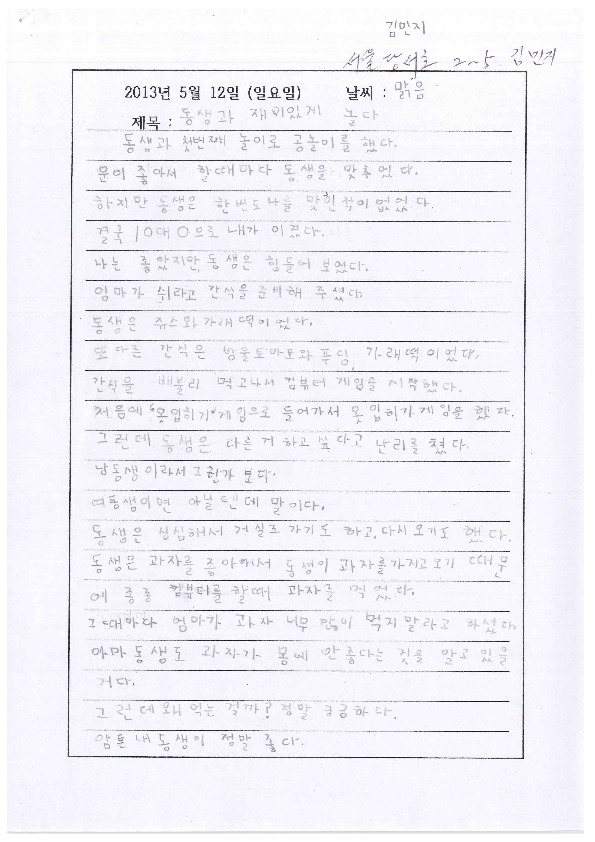 김민지
서울당서초 2-5 김민지
2013년 5월 12일 (일요일) 날씨 : 맑음
제목 : 동생과 재미있게 놀다
동생과 첫번째 놀이로 공놀이를 했다.
운이 좋아서 할때마다 동생을 맞추었다.
하지만 동생은 한번도 나를 맞힌적이 없었다.
결국 10대 0으로 내가 이겼다.
나는 좋았지만, 동생은 힘들어 보였다.
엄마가 쉬라고 간식을 준비해 주셨다.
동생은 쥬스와 가래떡이었다.
또다른 간식은 방울토마토와 푸딩, 가래떡이었다.
간식을 배불리 먹고나서 컴퓨터 게임을 시작했다.
처음에 "옷입히기"게임으로 들어가서 옷 입히기 게임을 했다.
그런데 동생은 다른 거 하고 싶다고 난리를 쳤다.
남동생이라서 그런가 보다.
여동생이면 아닐텐데 말이다.
동생은 심심해서 거실로 가기도 하고, 다시 오기도 했다.
동생은 과자를 좋아해서 동생이 과자를 가지고 오기 때문
에 종종 컴퓨터를 할때 과자를 먹었다.
그때마다 엄마가 과자 너무 많이 먹지 말라고 하셨다.
아마 동생도 과자가 몸에 안좋다는 것을 알고 있을
거다.
그런데 왜 먹는 걸까? 정말 궁금하다.
암튼 내 동생이 정말 좋다.